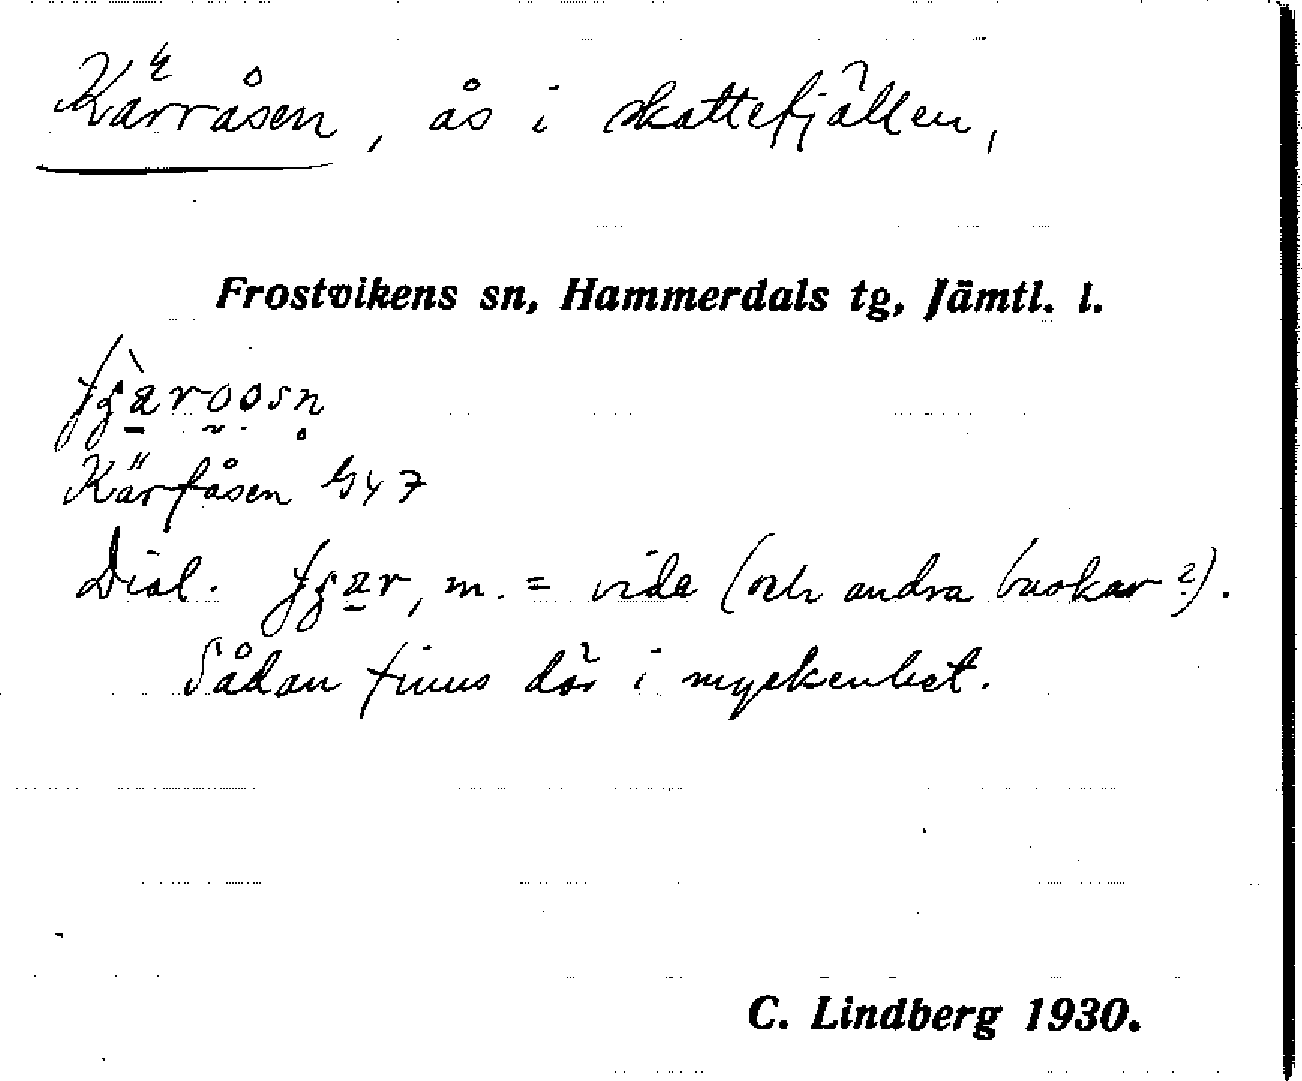 Kärråsen, ås i skattefjällen,
Frostvikens sn, Hammerdals tg, Jämtl. l.
Kärråsen G47
Dial. m. = vide (och andra buskar?).
Sådan finns där i myckenhet.
C. Lindberg 1930.